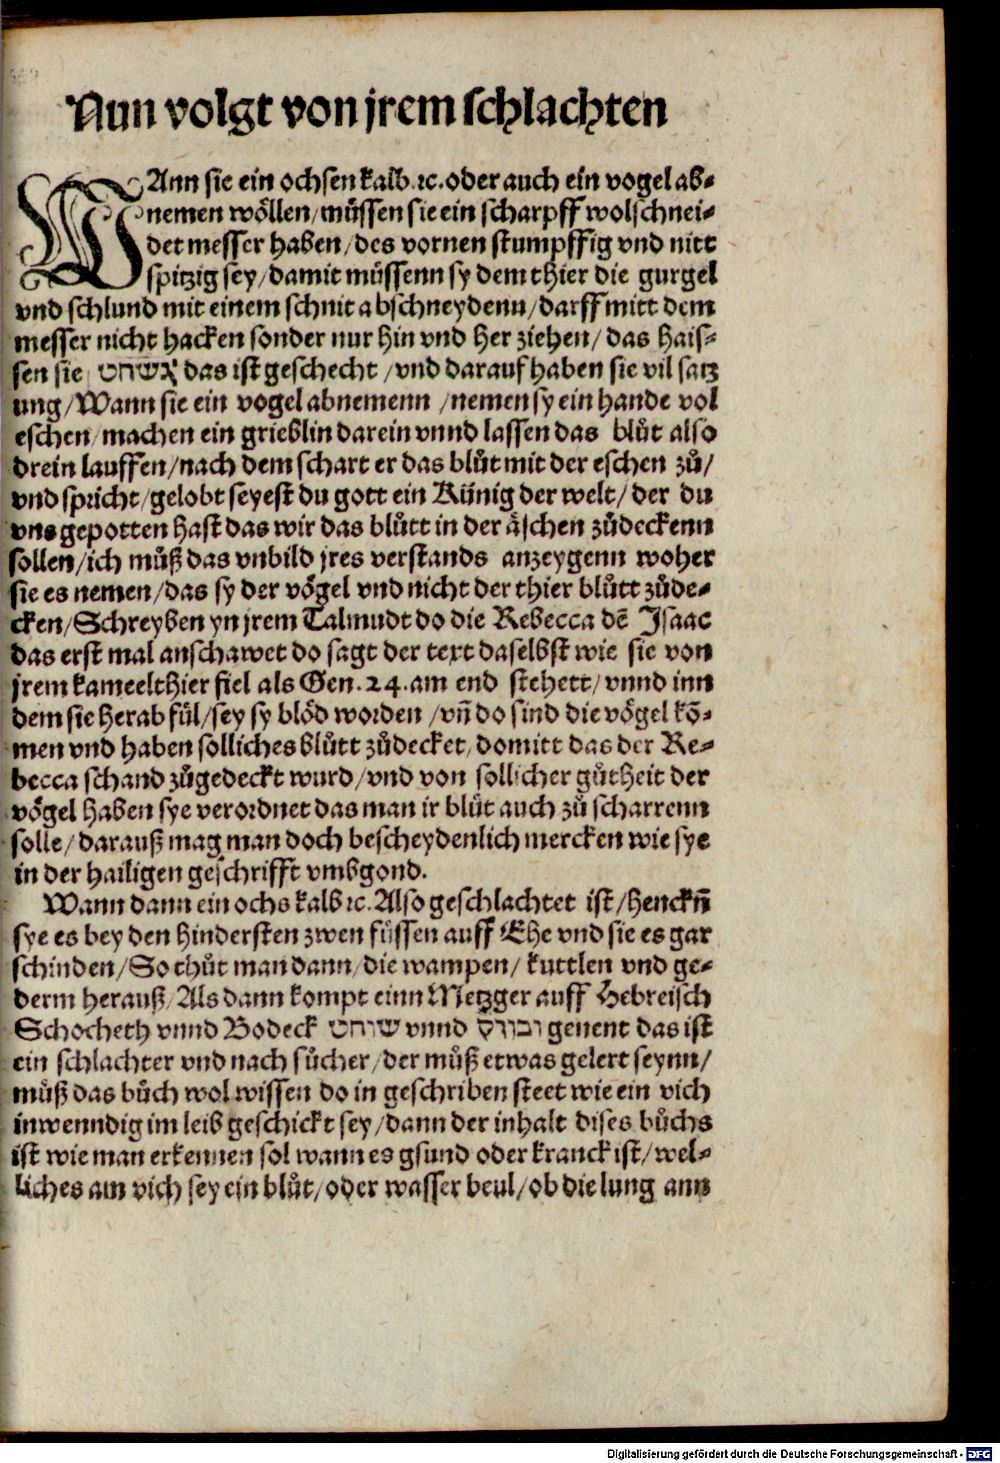 Nun volgt von jrem schlachten
WAnn sie ein ochsen kalb ꝛc. oder auch ein vogel ab⸗
nemen wöllen/müssen sie ein scharpff wolschnei⸗
det messer haben/des vornen stumpffig vnd nitt
spitzig sey/damit müssenn sy dem thier die gurgel
vnd schlund mit einem schnit abschneydenn/darff mitt dem
messer nicht hacken sonder nur hin vnd her ziehen/das hais⸗
sen sie das ist geschecht/vnd darauf haben sie vil satz
ung/Wann sie ein vogel abnemenn/nemen sy ein hande vol
eschen/machen ein grieblin darein vnnd lassen das blůt also
drein lauffen/nach dem schart er das blůt mit der eschen zů/
vnd spricht/gelobt seyest du gott ein Künig der welt/der du
vns gepotten hast das wir das blůtt in der äschen zůdeckenn
sollen/ich můß das vnbild jres verstands anzeygenn woher
sie es nemen/das sy der vögel vnd nicht der thier blůtt zůde⸗
cken/Schreyben yn jrem Talmudt do die Rebecca dē Isaac
das erst mal anschawet do sagt der text daselbst wie sie von
jrem kameelthier fiel als Gen. 24. am end stehett/vnnd inn
dem sie herab fül/sey sy blöd worden/vn̄ do sind die vögel kō⸗
men vnd haben solliches blůtt zůdecket/domitt das der Re⸗
becca schand zůgedeckt wurd/vnd von sollicher gůtheit der
vögel haben sye verordnet das man ir blůt auch zů scharrenn
solle/darauß mag man doch bescheydenlich mercken wie sye
in der hailigen geschrifft vmbgond.
Wann dann ein ochs kalb ꝛc. Also geschlachtet ist/henckn̄
sye es bey den hindersten zwen füssen auff Ehe vnd sie es gar
schinden/So thůt man dann/die wampen/kuttlen vnd ge⸗
derm herauß/Als dann kompt einn Metzger auff Hebreisch
Schocheth vnnd Bodeck שוחט vnnd ובודק genent das ist
ein schlachter vnd nach sůcher/der můß etwas gelert seynn/
můß das bůch wol wissen do in geschriben steet wie ein vich
inwenndig im leib geschickt sey/dann der inhalt dises bůchs
ist wie man erkennen sol wann es gsund oder kranck ist/wel⸗
liches am vich sey ein blůt/oder wasser beul/ob die lung ann
Digitalisierung gefördert durch die Deutsche Forschungsgemeinschaft - DFG